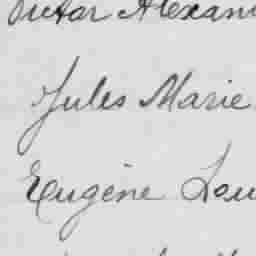 Victor Alexan
Jules Marie
Eugène Lou